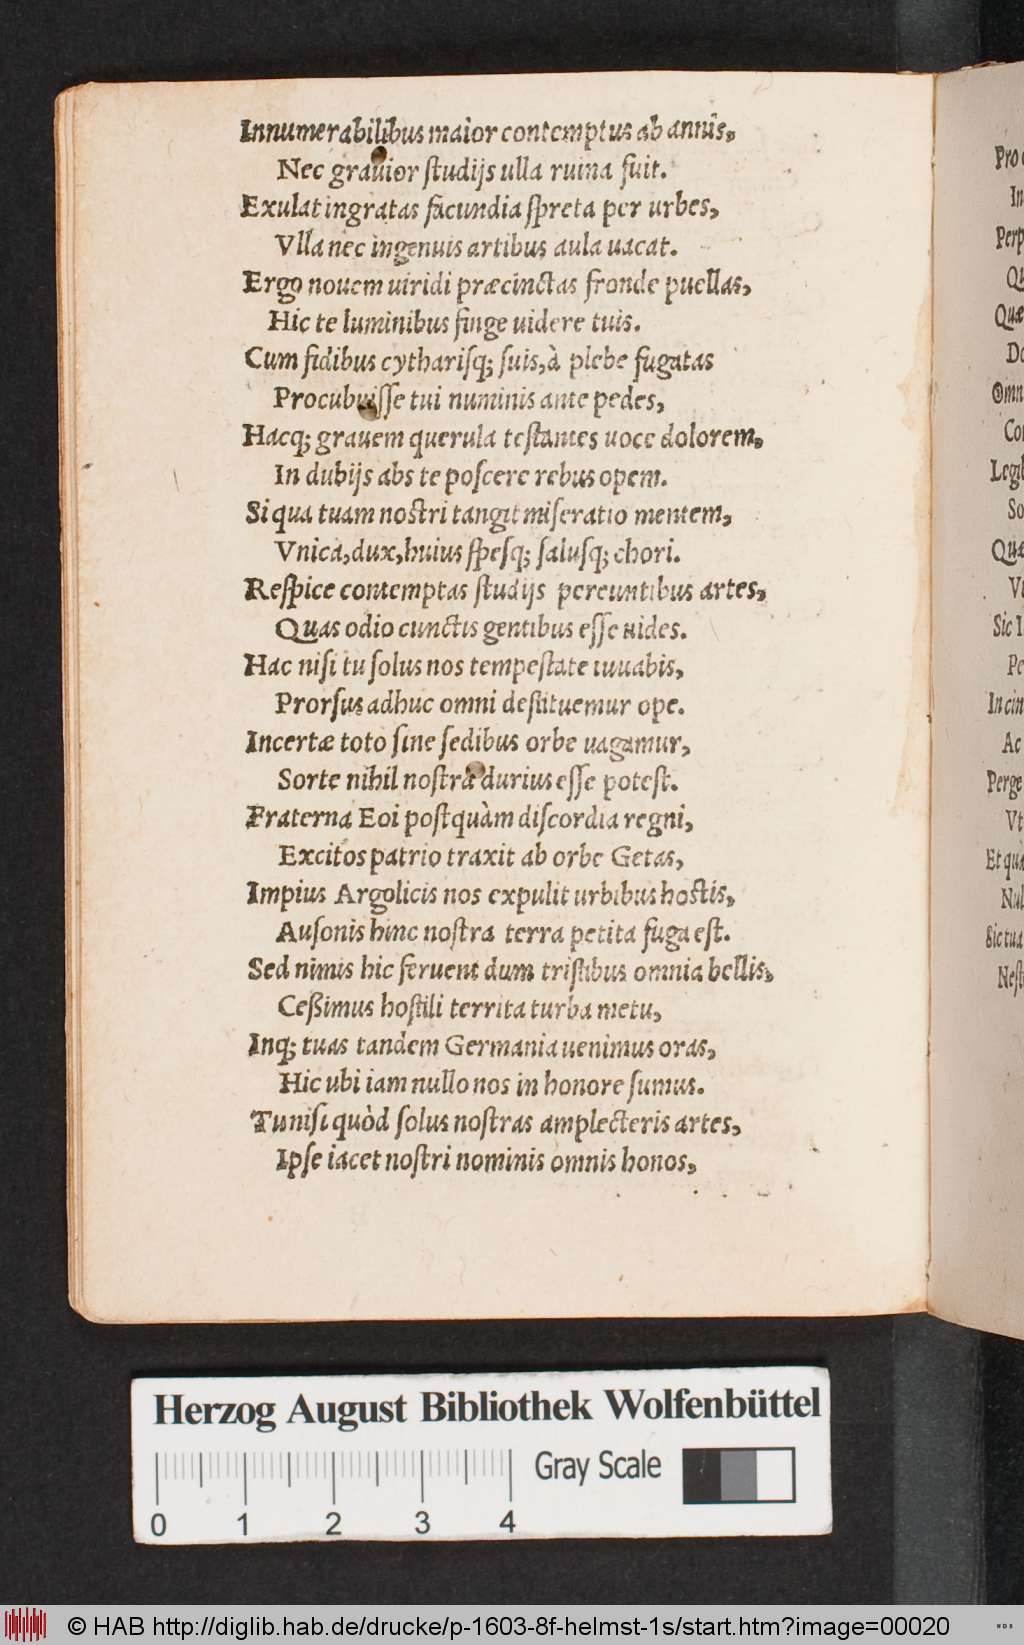 Innumerabilibus maior contemptus ab annis,
Nec grauior ſtudijs ulla ruina fuit.
Exulat ingratas facundia ſpreta per urbes,
Vlla nec ingenuis artibus aula uacat.
Ergo nouem uiridi præcinctas fronde puellas,
Hic te luminibus finge uidere tuis.
Cum fidibus cytharisq; ſuis, à plebe fugatas
Procubuiſſe tui numinis ante pedes,
Hacq; grauem querula teſtantes uoce dolorem,
In dubijs abs te poſcere rebus opem.
Si qua tuam noſtri tangit miſeratio mentem,
Vnica, dux, huius ſpeſq; ſaluſq; chori.
Reſpice contemptas ſtudijs pereuntibus artes,
Quas odio cunctis gentibus eſſe uides.
Hac niſi tu ſolus nos tempeſtate iuuabis,
Prorſus adhuc omni deſtituemur ope.
Incertæ toto ſine ſedibus orbe uagamur,
Sorte nihil noſtra durius eſſe poteſt.
Fraterna Eoi poſtquàm diſcordia regni,
Excitos patrio traxit ab orbe Getas,
Impius Argolicis nos expulit urbibus hoſtis,
Auſonis hinc noſtra terra petita fuga eſt.
Sed nimis hic feruent dum triſtibus omnia bellis,
Ceßimus hoſtili territa turba metu,
Inq; tuas tandem Germania uenimus oras,
Hic ubi iam nullo nos in honore ſumus.
Tu niſi quòd ſolus noſtras amplecteris artes,
Ipſe iacet noſtri nominis omnis honos,
Pro
In
Perp
Qu
Quæ
Do
Omn
Con
Legib
So
Quæ
Vt
Sic I
Pe
In cin
Ac
Perge
Vt
Et quà
Nul
Sic tua
Neſt
Herzog August Bibliothek Wolfenbüttel
Gray Scale
0 1 2 3 4
© HAB http://diglib.hab.de/drucke/p-1603-8f-helmst-1s/start.htm?image=00020